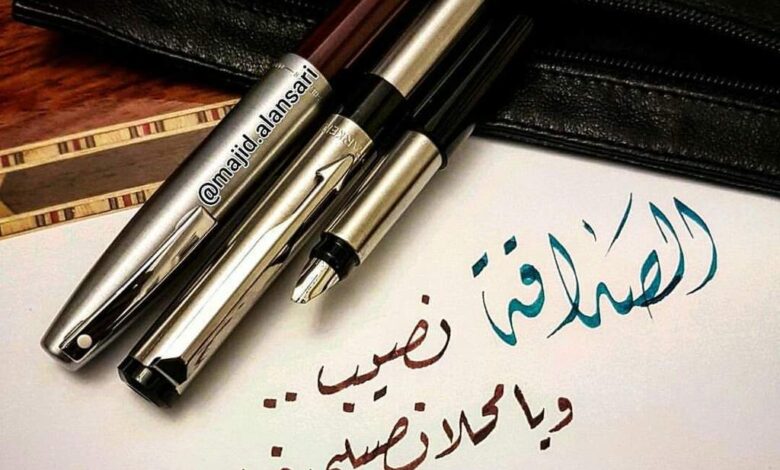 @majid.alansari
PARKER
الصَداقة نصيب ..
ويا محلا نصيبي